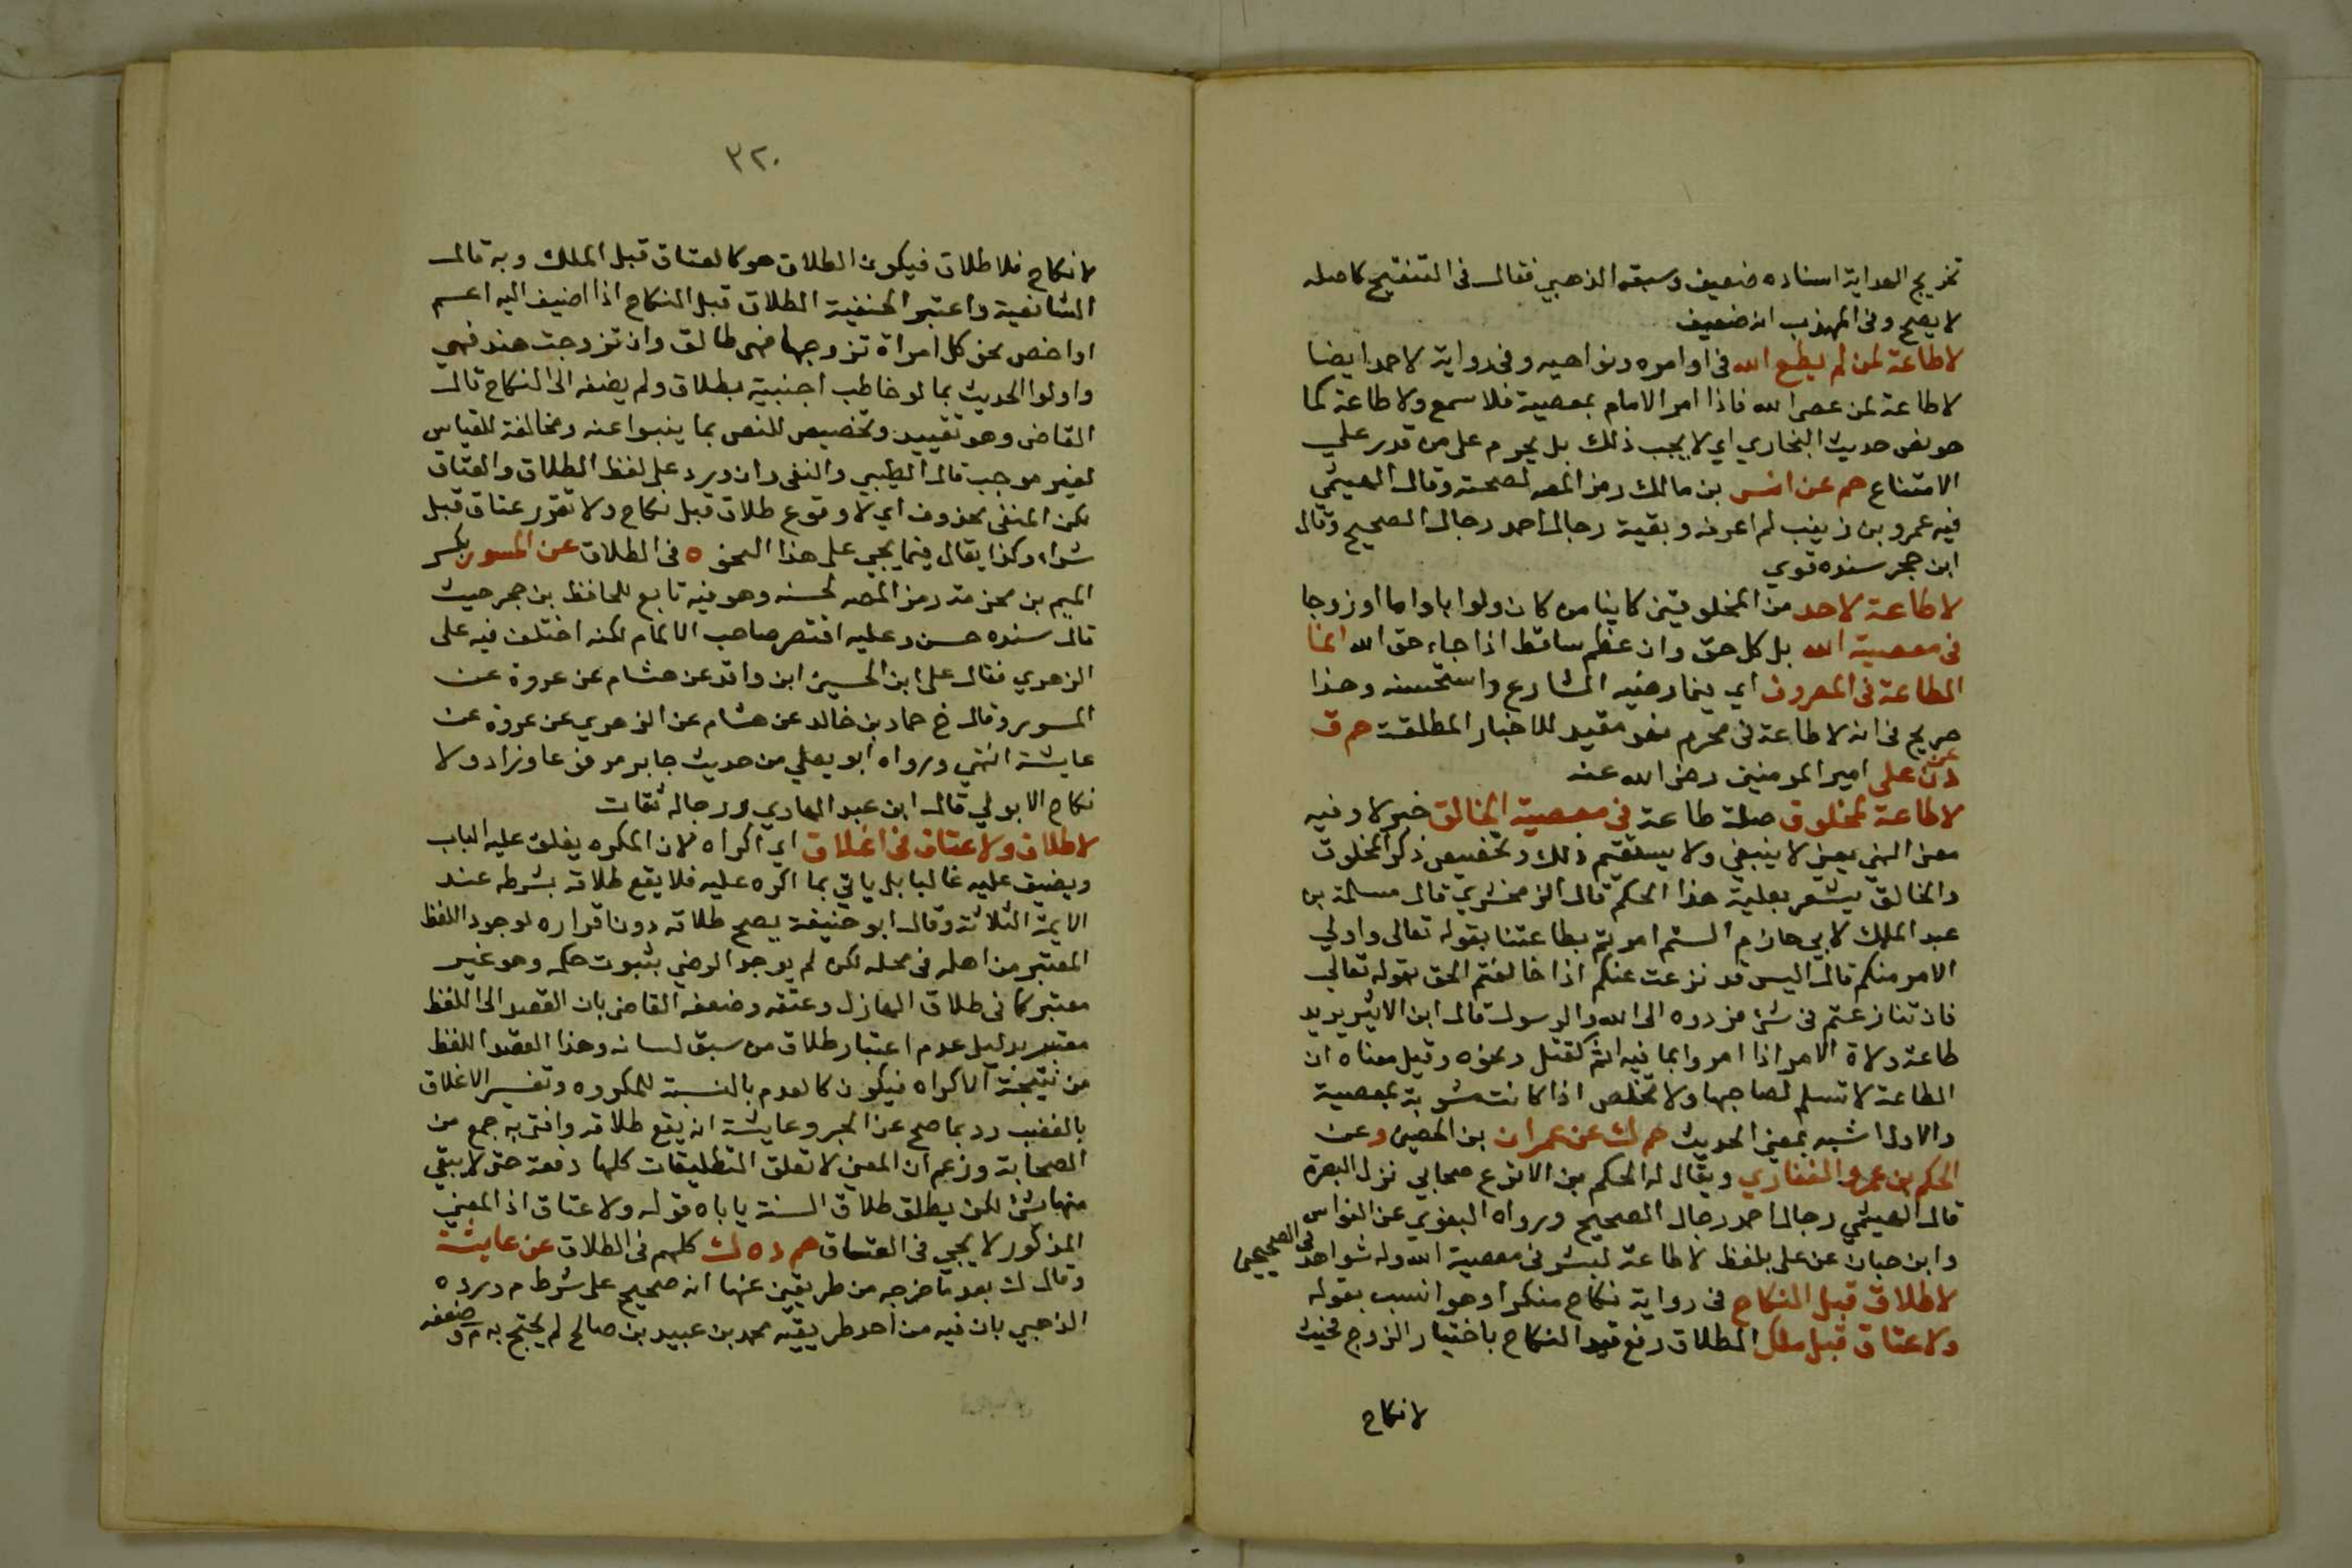 تخريج الهداية اسناده ضعيف وسبقه الذهبي فقال فى التنقيح كاصله
لا يصح وفى المهذب انه ضعيف
لا طاعة لمن لم يطع الله فى اوامره ونواهيه وفى رواية لاحمد ايضا
لا طاعة لمن عصى الله فاذا امر الامام بمعصية فلا سمع ولا طاعة كما
هو نص حديث البخاري اي لا يجب ذلك بل يحرم على من قدر على
الامتناع حم عن انس بن مالك رمز المصـ لصحته وقال الهيثمي
فيه عمرو بن زينب لم اعرفه وبقية رجال احمد رجال الصحيح وقال
ابن حجر سنده قوي
لا طاعة لاحد من المخلوقين كاينا من كان ولو ابا واما او زوجا
فى معصية الله بل كل حق وان عظم ساقط اذا جاء حق الله انما
الطاعة فى المعروف اي فيما رضيه الشارع واستحسنه وهذا
صريح فى انه لا طاعة فى محرم فهو مقيد للاخبار المطلقة حم ق
د ن عن على امير المومنين رضى الله عنه
لا طاعة لمخلوق صلة طاعة فى معصية الخالق خبر لا وفيه
معنى النهي يعني لا ينبغي ولا يستقيم ذلك وتخصيص ذكر المخلوق
والخالق يشعر بعلية هذا الحكم قال الزمخشري قال مسلمة بن
عبد الملك لابي حازم الستم امرتم بطاعتنا بقوله تعالى واولي
الامر منكم قال اليس قد نزعت عنكم اذا خالفتم الحق بقوله تعالى
فان تنازعتم فى شئ فردوه الى الله والرسول قال ابن الاثير يريد
طاعة ولاة الامر اذا امروا بما فيه اثم كقتل ونحوه وقيل معناه ان
الطاعة لا تسلم لصاحبها ولا تخلص اذا كانت مشوبة بمعصية
والاول اشبه بمعنى الحديث حم ك عن عمران بن الحصين وعن
الحكم بن عمرو الغفاري ويقال له الحكم بن الاقرع صحابي نزل البصرة
قال الهيثمي رجال احمد رجال الصحيح ورواه البغوي عن النواس
وابن حبان عن على بلفظ لا طاعة لبشر فى معصية الله وله شواهد فى الصحيحين
لا طلاق قبل النكاح فى رواية نكاح منكرا وهو انسب بقوله
ولا عتاق قبل ملك الطلاق رفع قيد النكاح باختيار الزوج فحيث
لا نكاح
٣٢٠
لا نكاح فلا طلاق فيكون الطلاق هو كالعتاق قبل الملك وبه قال
الشافعية واعتبر الحنفية الطلاق قبل النكاح اذا اضيف اليه اعم
او اخص نحو كل امراة تزوجها فهى طالق وان تزوجت هند فهي
واولوا الحديث بما لو خاطب اجنبية بطلاق ولم يضفه الى النكاح قال
القاضى وهو تقييد وتخصيص للنص بما ينبوا عنه ومخالفة للقياس
لغير موجب قال الطيبي والنفى وان ورد على لفظ الطلاق والعتاق
لكن المنفى محذوف اي لا وقوع طلاق قبل نكاح ولا تقرر عتاق قبل
شراء وكذا يقال فيما يجي على هذا النحو ه فى الطلاق عن المسور بكسر
الميم بن مخرمة رمز المصـ لحسنه وهو فيه تابع للحافظ بن حجر حيث
قال سنده حسن وعليه اقتصر صاحب الالمام لكنه اختلف فيه على
الزهري فقال على ابن الحسين ابن واقد عن هشام عن عروة عن
المسور وقال خ حماد بن خالد عن هشام عن الزهري عن عروة عن
عايشة انتهى ورواه ابو يعلي من حديث جابر مرفوعا وزاد ولا
نكاح الا بولي قال ابن عبد الهادي ورجاله ثقات
لا طلاق ولا عتاق فى اغلاق اي اكراه لان المكره يغلق عليه الباب
ويضيق عليه غالبا بل ياتي بما اكره عليه فلا يقع طلاقه بشرطه عند
الايمة الثلاثة وقال ابو حنيفة يصح طلاقه دون اقراره لوجود اللفظ
المعتبر من اهله فى محله لكن لم يوجد الرضي بثبوت حكمه وهو غير
معتبر كما فى طلاق الهازل وعتقه وضعفه القاضى بان القصد الى اللفظ
معتبر بدليل عدم اعتبار طلاق من سبق لسانه وهذا القصد اللفظ
من نتيجة الاكراه فيكون كالعدم بالنسبة للمكروه وتفسير الاغلاق
بالغضب رد بما صح عن الحبر وعايشة انه يقع طلاقه وافتى به جمع من
الصحابة وزعم ان المعنى لا تغلق التطليقات كلها دفعة حتى لا يبقي
منها شئ لكن يطلق طلاق السنة ياباه قوله ولا عتاق اذ المعني
المذكور لا يجي فى العتاق حم د ه ك كلهم فى الطلاق عن عايشة
وقال ك بعد ما خرجه من طريقين عنها انه صحيح على شرط م ورده
الذهبي بان فيه من احد طريقيه محمد بن عبيد بن صالح لم يحتج به م وضعفه